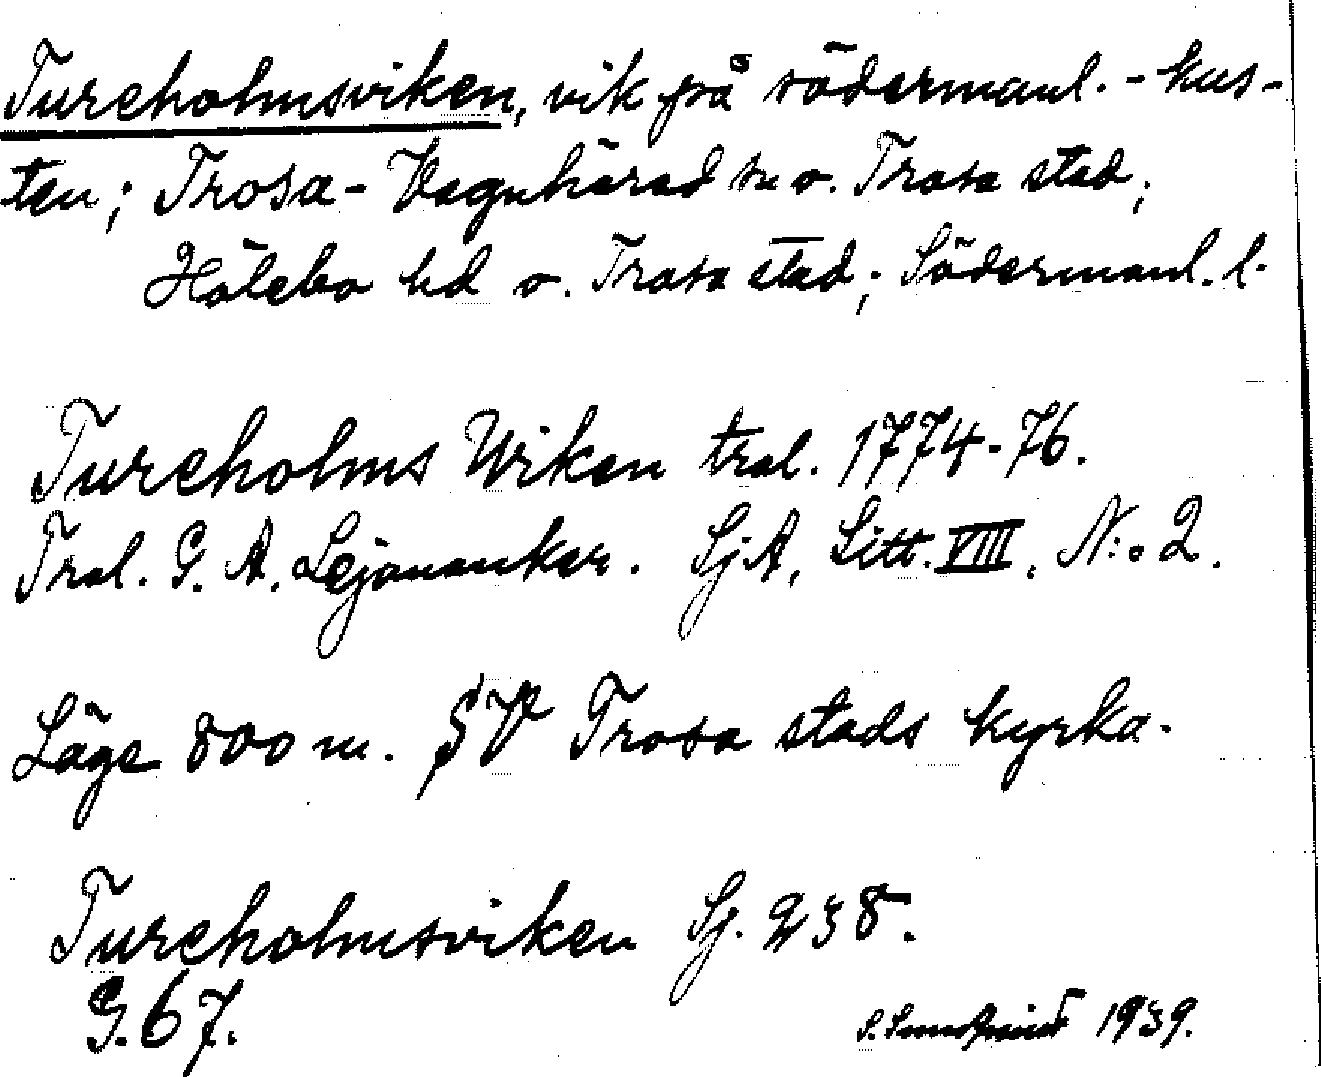 Tureholmsviken, vik på södermanl.-kus-
ten; Trosa-Vagnhärad sn o. Trosa stad;
Hölebo hd o. Trosa stad; Södermanl. l.
Tureholms Wiken tral. 1774-76.
Tral. G. A. Lejonanker. SjA, Litt. VIII, N:o 2.
Läge 800 m. SV Trosa stads kyrka.
Tureholmsviken Sj. 238.
G. 67.
1939.